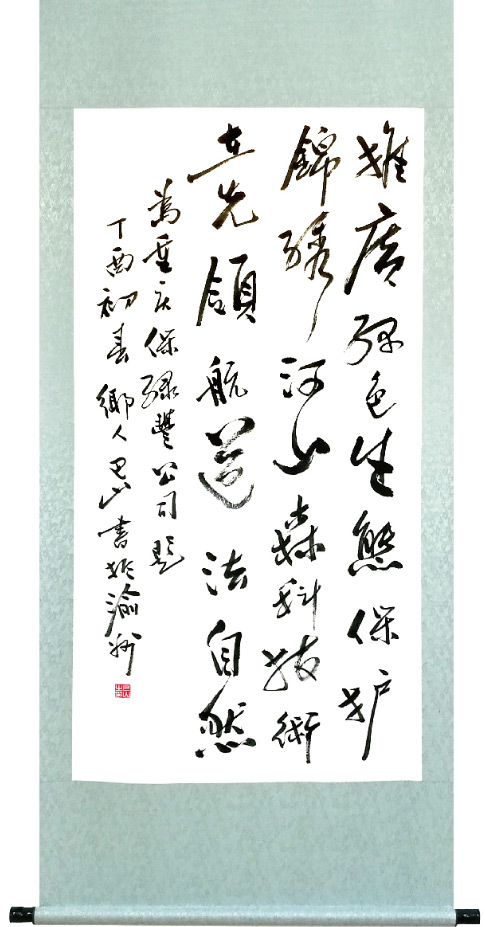 推廣绿色生態保护
錦绣河山森科技術
在先領航道法自然
為重庆保绿豐公司題
丁酉初春鄉人巴山書於渝州